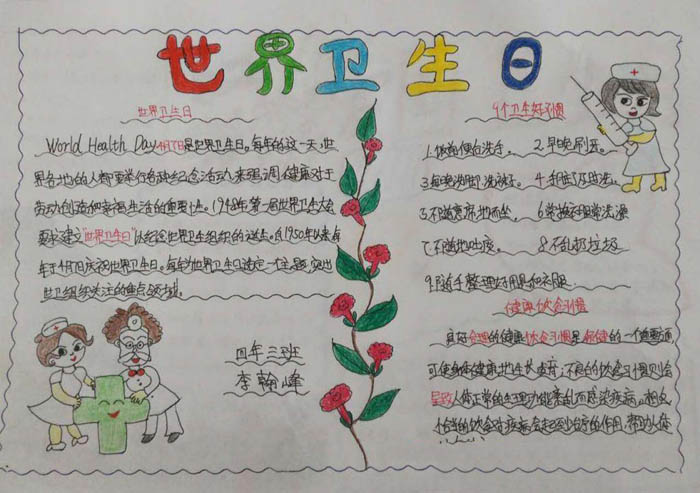 世界卫生日
世界卫生日
World Health Day 4月7日是世界卫生日。每年的这一天,世
界各地的人都要举行各种纪念活动,来强调健康对于
劳动创造和幸福生活的重要性。1948年第一届世界卫生大会
要求建立"世界卫生日"以纪念世界卫生组织的诞生。自1950年以来每
年于4月7日庆祝世界卫生日。每年为世界卫生日选定一个主题,突出
世卫组织关注的重点领域。
四年三班
李翰峰
9个卫生好习惯
1.饭前便后洗手。 2.早晚刷牙。
3.每晚洗脚、洗袜子。 4.
5.不随意席地而坐。 6.常换衣服常洗澡
7.不随地吐痰。 8.不乱扔垃圾
9.随手整理好用具和衣服
健康饮食习惯
良好合理的健康饮食习惯是保健的一个重要方面
可使身体健康地生长、发育;不良的饮食习惯则会
导致人体正常的生理功能紊乱而感染疾病。相反
恰当的饮食对疾病会起到治疗的作用,帮助人体